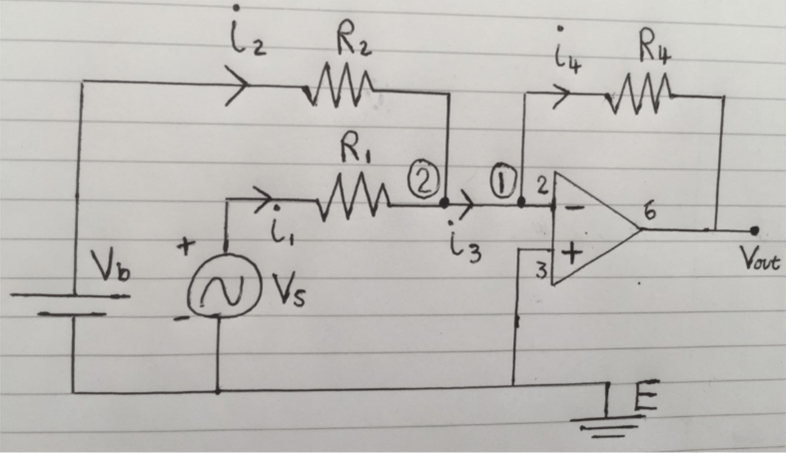 i2 R2 i4 R4
R1 ② ① 2 -
i1 i3 3 + 6
+ Vb Vs Vout
-
E